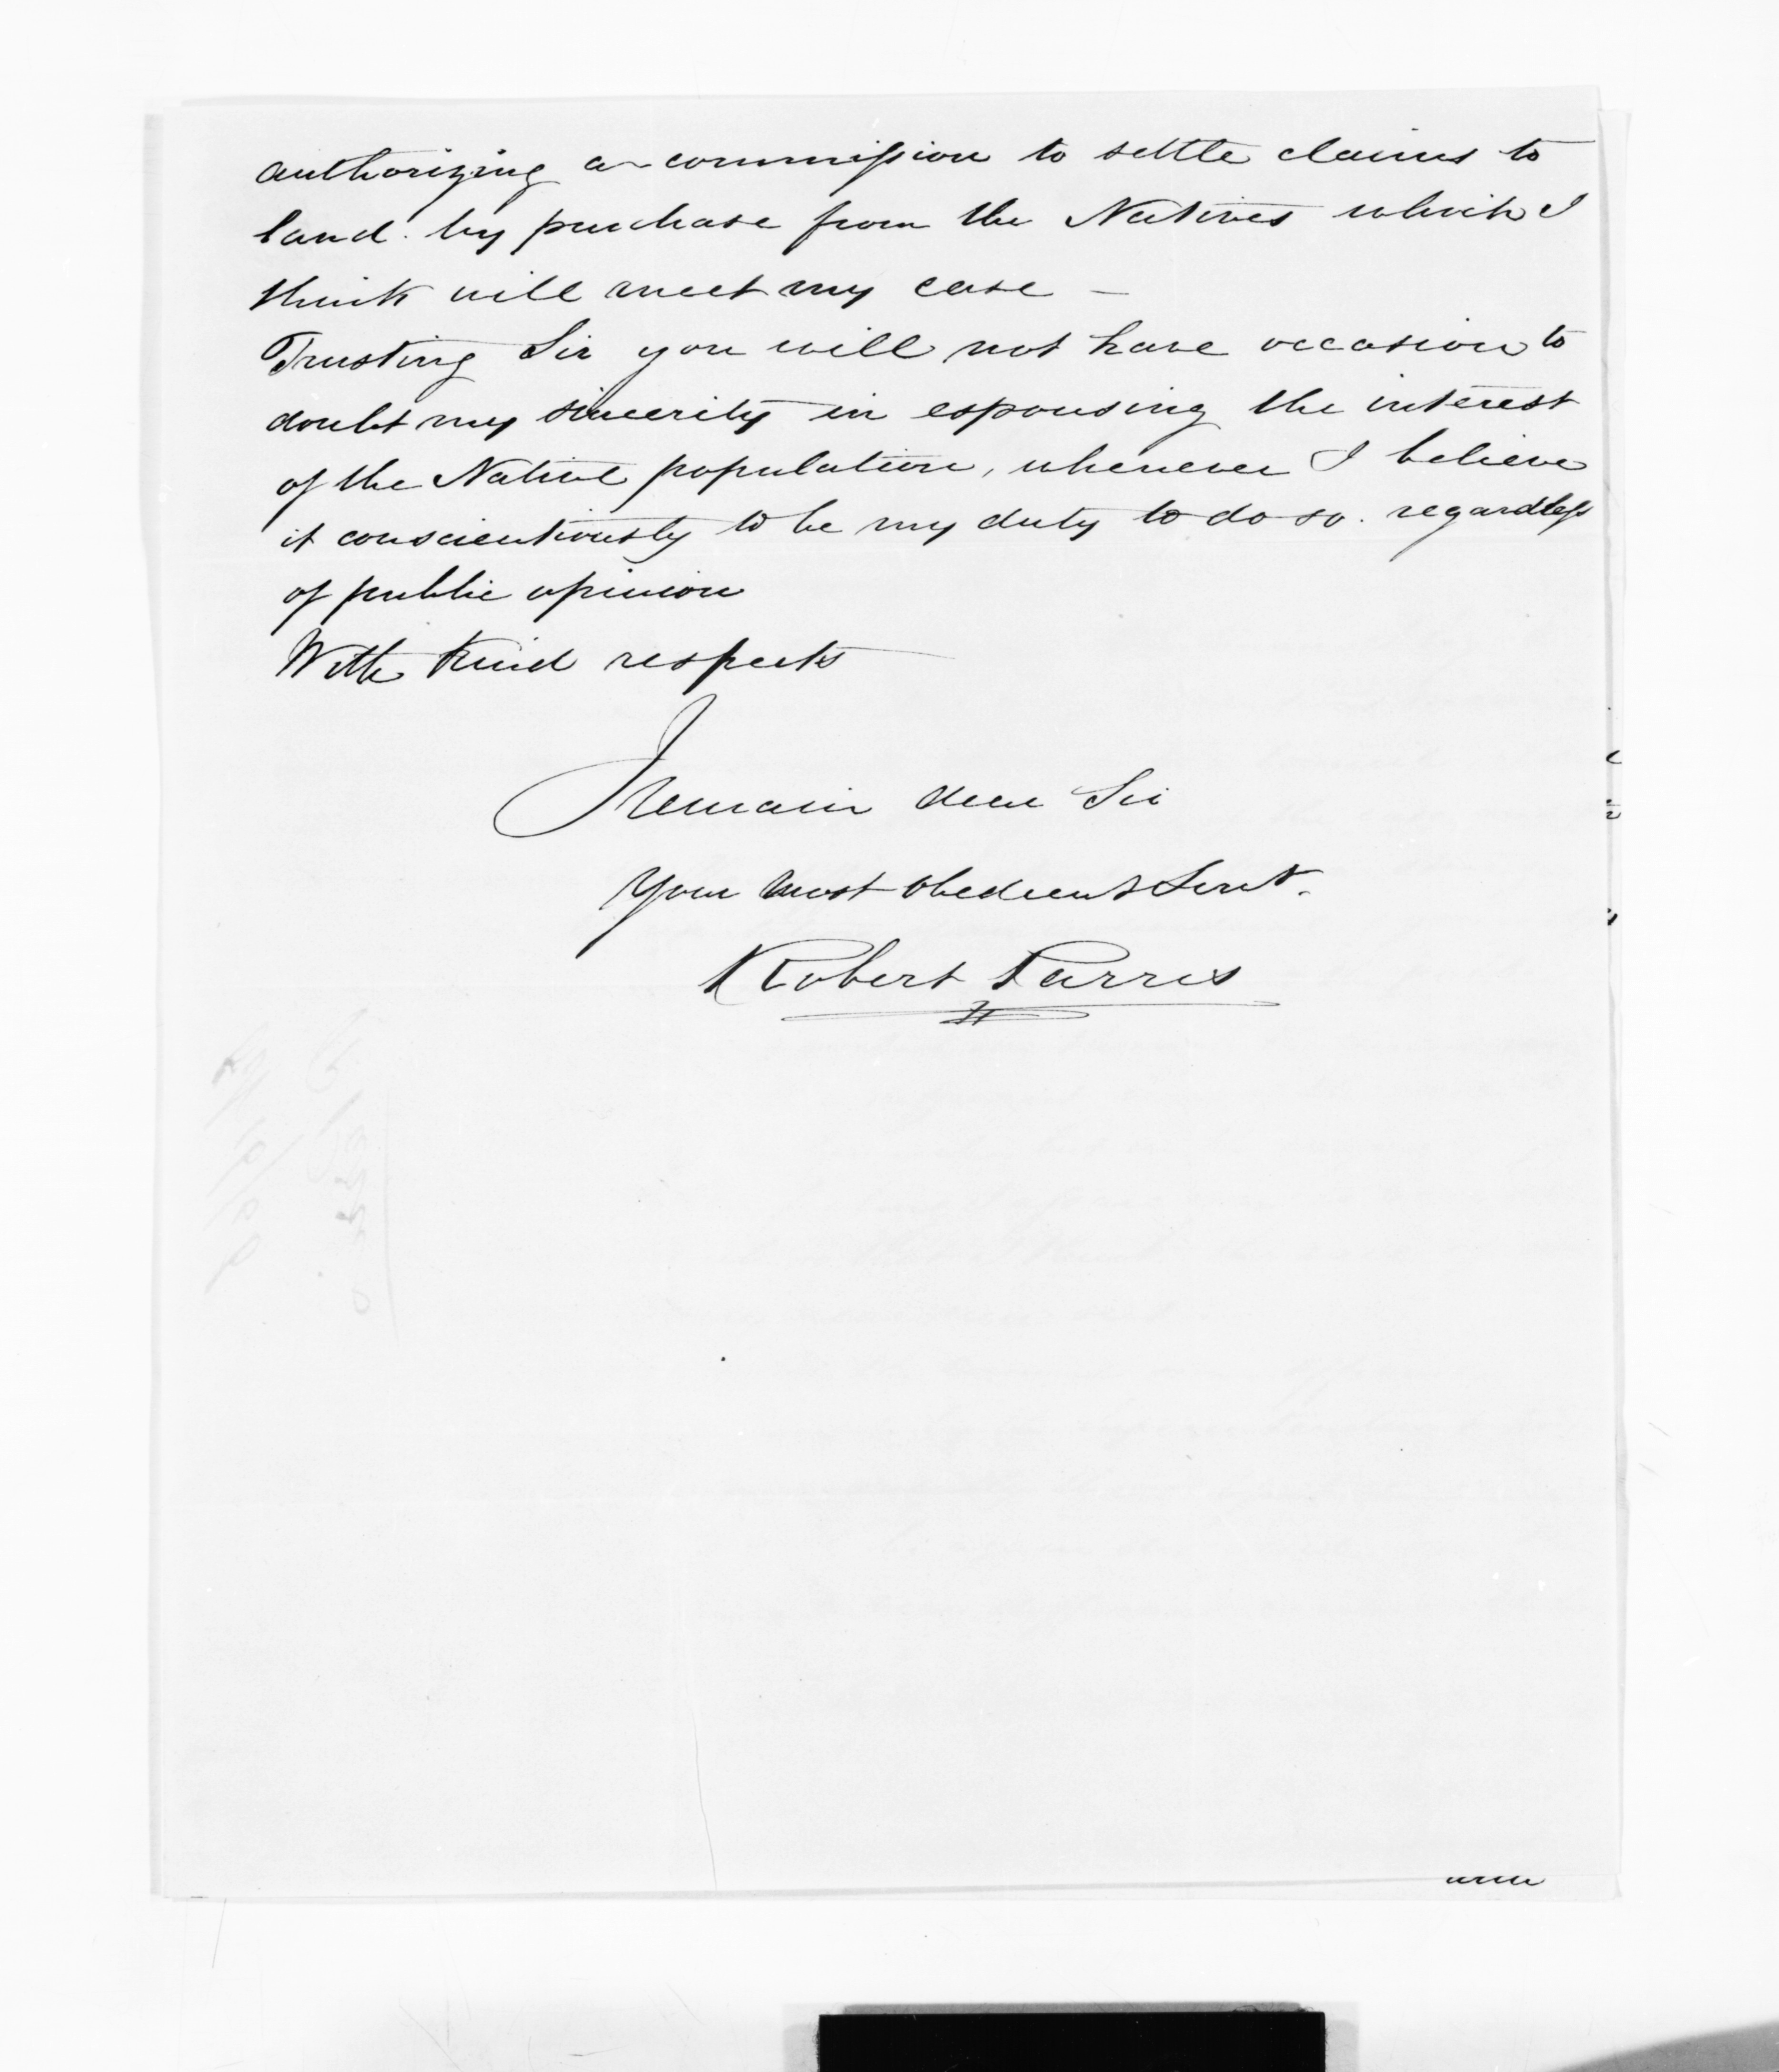 authorizing a commission to settle claims to
land. by purchase from the Natives which I
think will meet my case —
Trusting Sir you will not have occasion to
doubt my sincerity in espousing the interest
of the Native population, whenever I believe
it conscientiously to be my duty to do so. regardless
of public opinion
With kind respects
I remain dear Sir
Your most obedient Servt.
Robert Parris